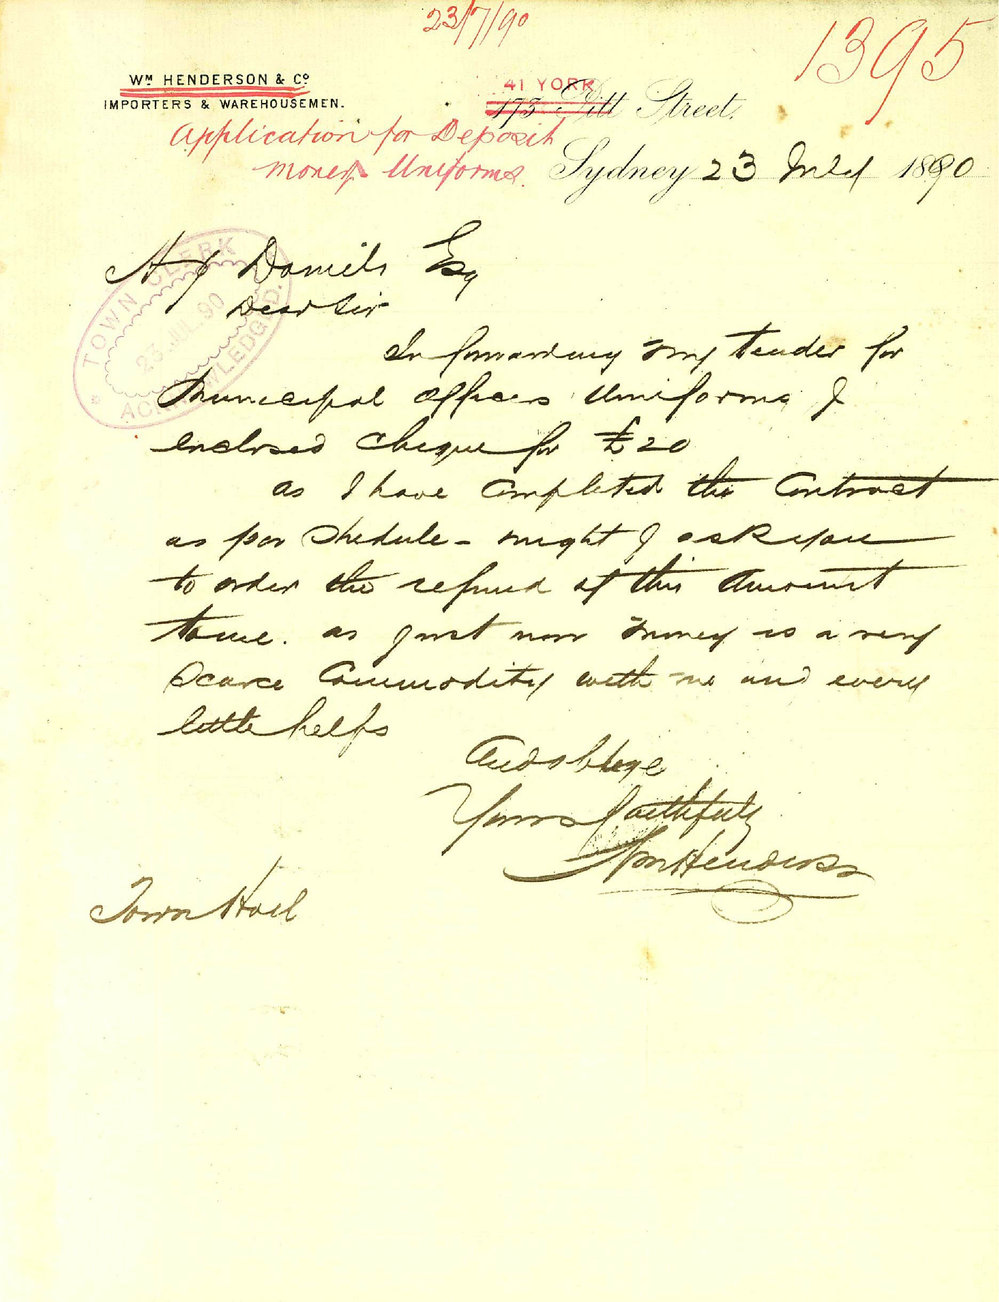 23/7/90
1395
Wm HENDERSON & Co
IMPORTERS & WAREHOUSEMEN.
41 YORK
173 Pitt Street,
Application for Deposit
Money Uniforms.
Sydney 23 July 1890
TOWN CLERK
23 JUL. 90
ACKNOWLEDGED.
H J Daniels Esq
Dear Sir
In forwarding my tender for
Municipal Officers Uniforms I
enclosed cheque for £20
as I have completed the Contract
as per Shedule - might I ask you
to order the refund of this Amount
to me. as just now money is a very
Scarce Commodity with me and every
little helps
And oblige
Yours faithfully
Wm Henderson
Town Hall